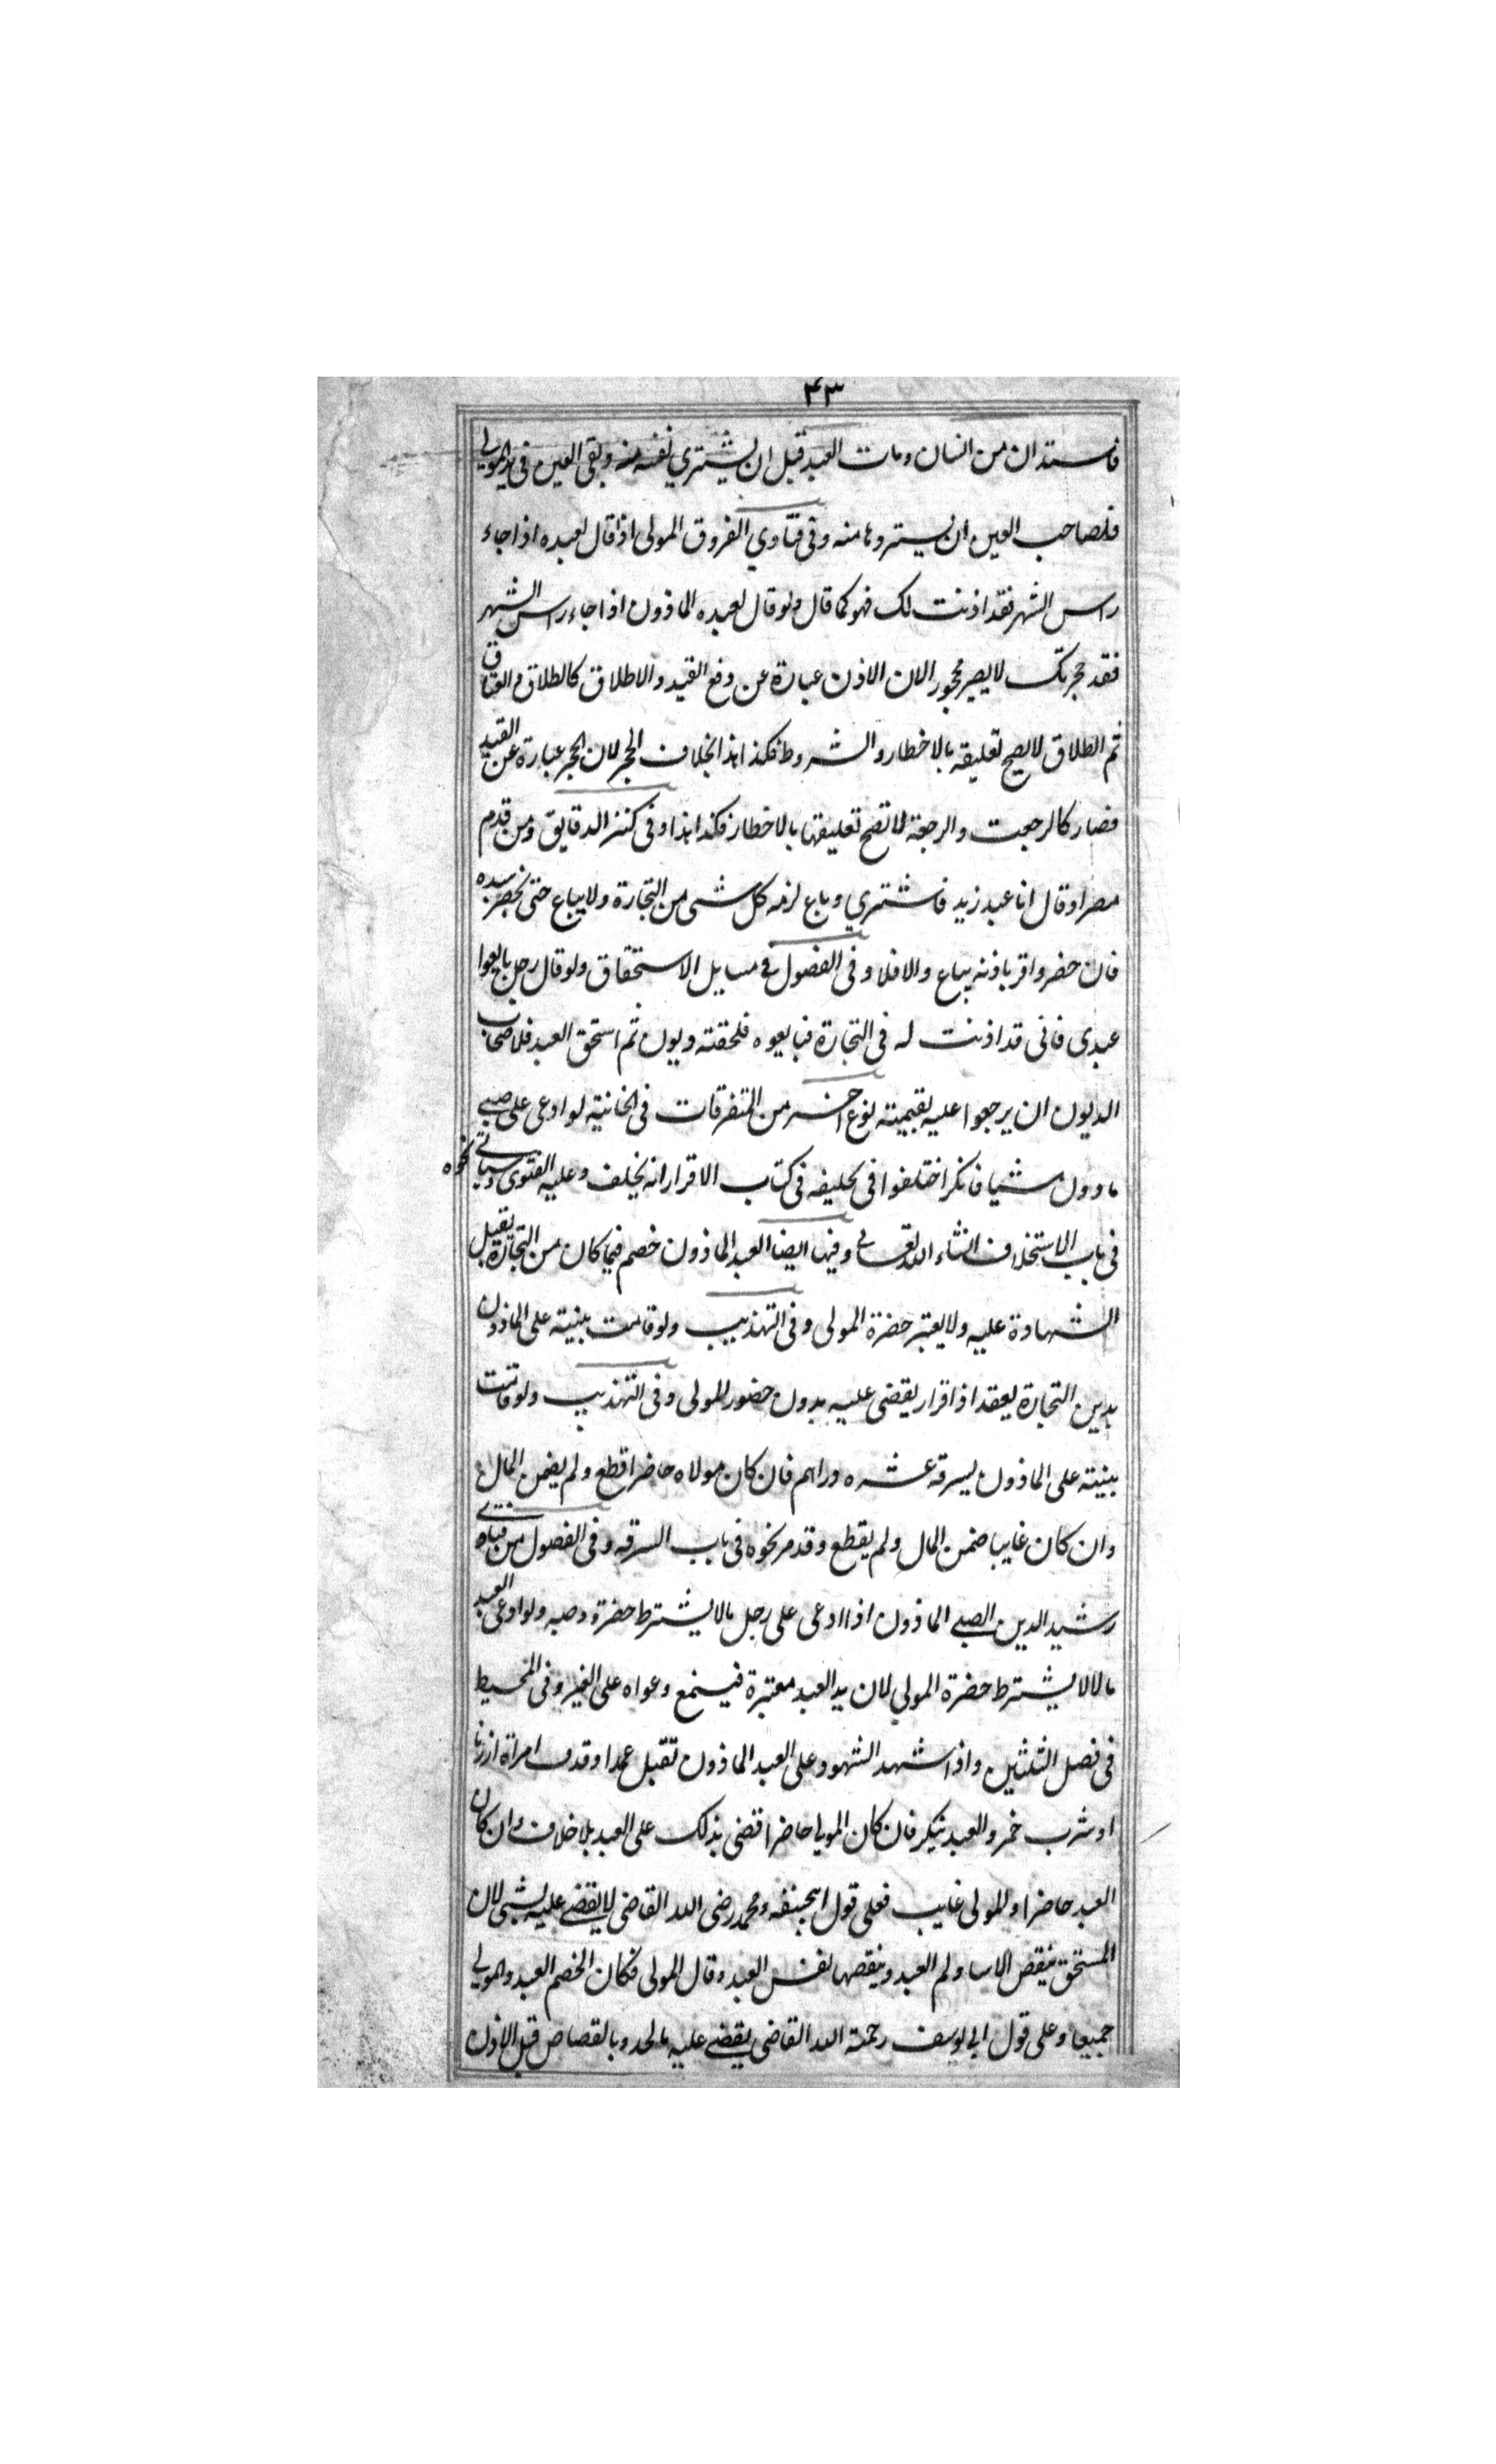 ٤٣
فاستدان من انسان ومات العبد قبل ان يشتري نفسه منه وبقى العين فى يد المولى
فلصاحب العين ان يستردها منه وفى فتاوي الفروق المولى اذا قال لعبده اذا جاء
راس الشهر فقد اذنت لك فهو كما قال ولو قال لعبده الماذون اذا جاء راس الشهر
فقد حجرتك لا يصير محجور الان الاذن عبارة عن رفع القيد والاطلاق كالطلاق والعتاق
ثم الطلاق لا يصح تعليقه بالاخطار والشروط فكذا هذا بخلاف الحجر لان الحجر عبارة عن القيد
فصار كالرجعت والرجعة لا تصح تعليقها بالاخطار فكذا هذا وفى كنز الدقايق ومن قدم
مصرا وقال انا عبد زيد فاشتري وباع لزمه كل شى من التجارة ولا يباع حتى يحضر سيده
فان حضر واقر باذنه يباع والا فلا وفى الفصول فى مسايل الاستحقاق ولو قال رجل بايعوا
عبدى فانى قد اذنت له فى التجارة فبايعوه فلحقته ديون ثم استحق العبد فلاصحاب
الديون ان يرجعوا عليه بقيمته نوع اخر من المتفرقات فى الخانيه لو ادعى على صبى
ماذون شيا فانكر اختلفوا فى تحليفه فى كتاب الاقرار انه يحلف وعليه الفتوى وسياتى نحوه
فى باب الاستحلاف انشاء الله تعالى وفيها ايضا العبد الماذون خصم فيما كان من التجارة يقبل
الشهادة عليه ولا يعتبر حضرة المولى وفى التهذيب ولو قامت بينة على الماذون
بدين التجارة بعقد او اقرار يقضى عليه بدون حضور المولى وفى التهذيب ولو قامت
بينته على الماذون بسرقه عشره دراهم فان كان مولاه حاضرا قطع ولم يضمن المال
وان كان غايبا ضمن المال ولم يقطع وقد مر نحوه فى باب السرقه وفى الفصول من فتاوى
رشيد الدين الصبى الماذون اذا ادعى على رجل مالا يشترط حضرة وصيه ولو ادعى العبد
مالا لا يشترط حضرة المولى لان يد العبد معتبرة فيسمع دعواه على الغير وفى المحيط
فى فصل الثلثين واذا شهد الشهود على العبد الماذون بقتل عمدا او قذف امراة او زنا
او شرب خمر والعبد ينكر فان كان المولى حاضرا قضى بذلك على العبد بلا خلاف وان كان
العبد حاضرا والمولى غايب فعلى قول ابيحنيفه ومحمد رضى الله القاضى لا يقضى عليه بشى لان
المستحق العبد وقال المولى فكان الخصم العبد والمولى
جميعا وعلى قول ابى يوسف رحمة الله القاضى يقضى عليه بالحد وبالقصاص قبل الاذن